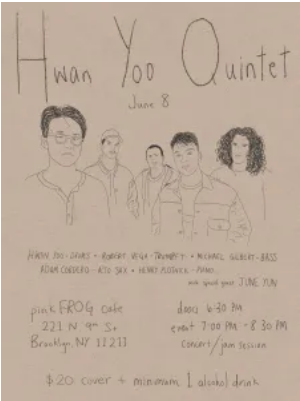 Hwan Yoo Quintet
June 8
HWAN YOO - DRUMS • ROBERT VEGA - TRUMPET • MICHAEL GILBERT - BASS
ADAM CORDERO - ALTO SAX • HENRY - PIANO
and special guest JUNE YUN
pink FROG cafe
221 N 9th St
Brooklyn, NY 11211
doors 6:30 PM
event 7:00 PM - 8:30 PM
concert/jam session
$20 cover + minimum 1 alcohol drink